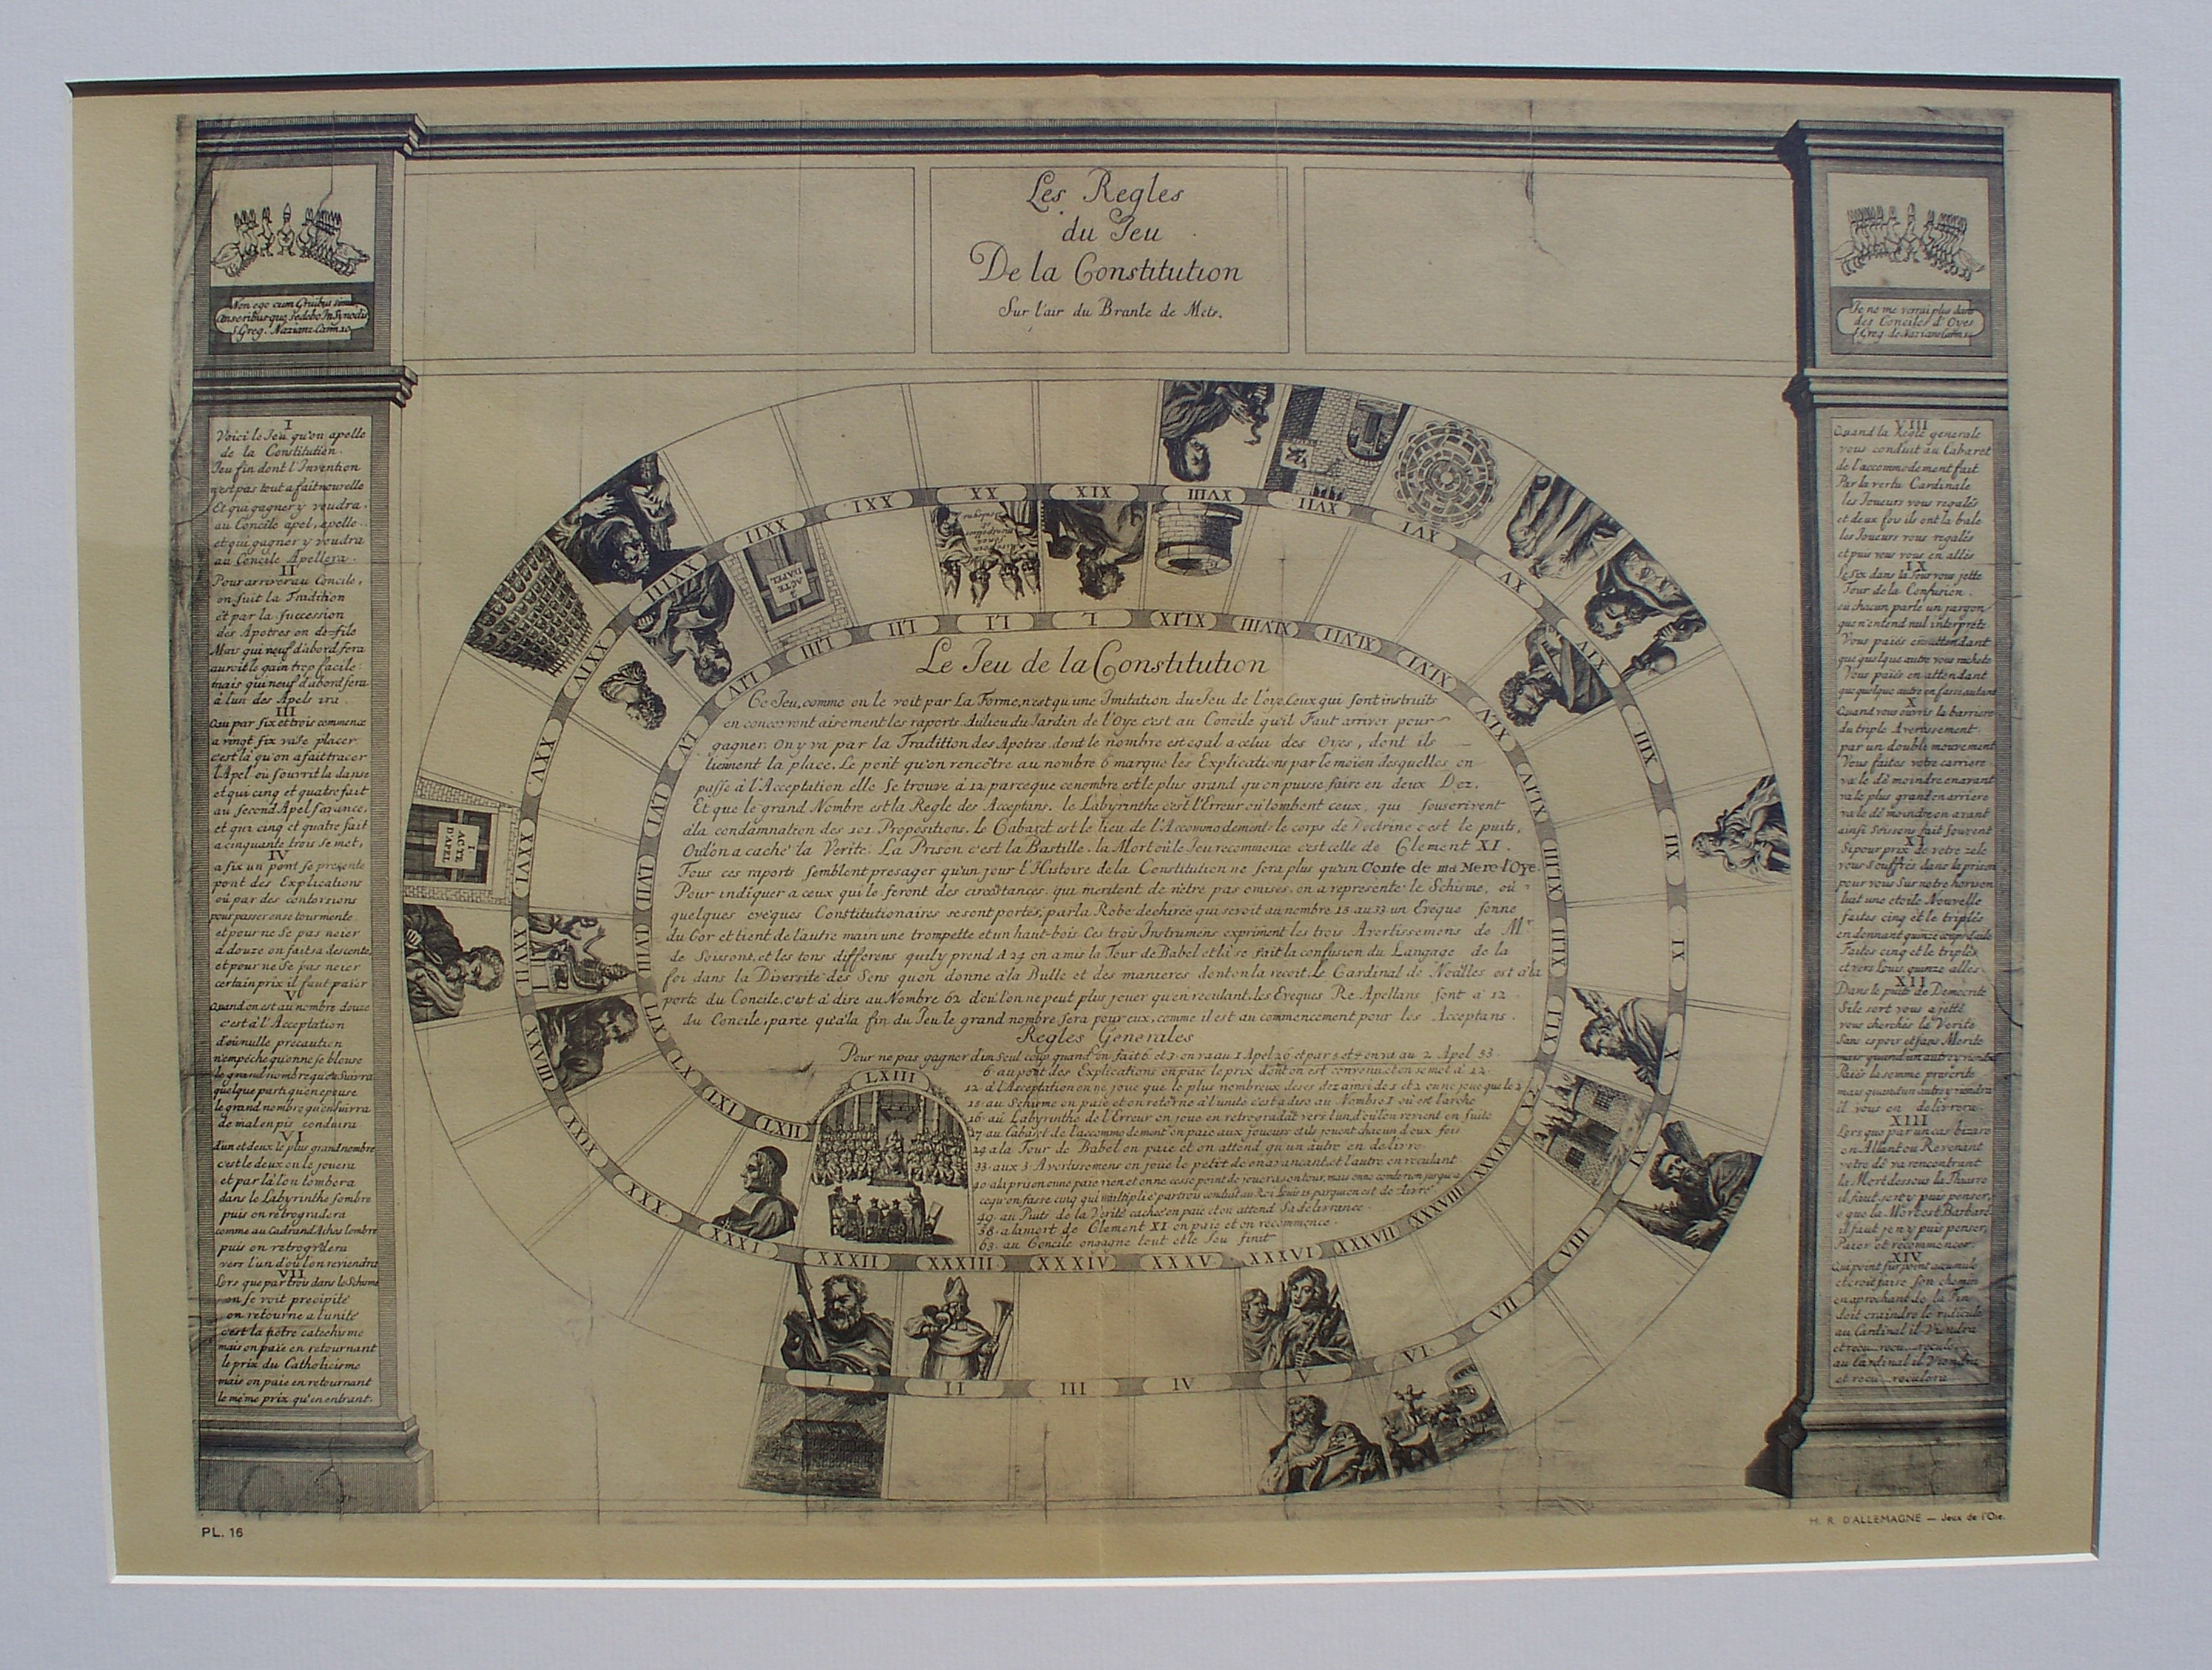 Les Regles
du Jeu
De la Constitution
Sur l'air du Branle de Mets.
Non ego cum Gruibus simul
Anseribusque sedebo In Synodis
S. Greg. Nazianz Carm. 10
Je ne me verrai plus dans
des Conciles d'Oyes
S. Greg. de Nazianz Carm. 10
I
Voici le Jeu qu'on apelle
de la Constitution.
Jeu fin dont l'Invention
n'est pas tout a fait nouvelle
Et qui gagner y voudra,
au Concile apel, apelle..
et qui gagner y voudra
au Concile Apellera.
II
Pour arriver au Concile,
on suit la Tradition
et par la succession
des Apotres on de-file
Mais qui neuf d'abord fera
auroit le gain trop facile
mais qui neuf d'abord fera
à l'un des Apels ira.
III
Qui par six et trois commence
a vingt six va se placer
c'est là qu'on a fait tracer
l'Apel où s'ouvrit la danse
et qui cinq et quatre fait
au second Apel s'avance,
et qui cinq et quatre fait
a cinquante trois se met,
IV
a six un pont se presente
pont des Explications
où par des contorsions
pour passer on se tourmente
et pour ne se pas neier
a douze on fait sa descente,
et pour ne se pas neier
certain prix il faut paier
V
Quand on est au nombre douze
c'est à l'Acceptation
d'où nulle précaution
n'empéche qu'on ne se blouse
le grand nombre qu'on suivra
quelque part qu'on epouse
le grand nombre qu'on suivra
de mal en pis conduira
VI
d'un et deux le plus grand nombre
c'est le deux on le jouera
et par là l'on tombera
dans le Labyrinthe sombre
puis on retrogradera
comme au Cadran d'Achas l'ombre
puis on retrogradera
vers l'un d'où l'on reviendra
VII
Lors que par trois dans le Schisme
on se voit precipité
on retourne a l'unité
c'est la notre catechisme
mais on paie en retournant
le prix du Catholicisme
mais on paie en retournant
le même prix qu'en entrant.
VIII
Quand la Regle generale
vous conduit au Cabaret
de l'accommodement fait
Par la vertu Cardinale
les Joueurs vous regalés
et deux fois ils ont la bale
les Joueurs vous regalés
et puis vous vous en allés
IX
le six dans la Tour vous jette
Tour de la Confusion.
où chacun parle un jargon
que n'entend nul interprete
Vous paiés en attendant
que quelque autre vous rachete
Vous paiés en attendant
que quelque autre en fasse autant
X
Quand vous ouvrés la barriere
du triple Avertissement
par un double mouvement
Vous faites votre carriere
va le dé moindre en avant
va le plus grand en arriere
va le dé moindre en avant
ainsi Soissons fait souvent
XI
Si pour prix de votre zele
vous souffrés dans la prison
pour vous sur notre horison
luit une etoile Nouvelle
faites cinq et le triplés
en donnant quinze coups d'aile
Faites cinq et le triplés
et vers Louis quinze allés
XII
Dans le puits de Democrite
Si le sort vous a jetté
vous cherchés la Verité
Sans espoir et sans Merite
mais quand un autre y viendra
Paiés la somme prescrite
mais quand un autre y viendra
il vous en delivrera.
XIII
Lors que par un cas bizare
en Allant ou Revenant
votre dé va rencontrant
la Mort dessous la Thiarre
il faut, j'en y puis penser,
o que la Mort est Barbare!
il faut j'en y puis penser,
Paier et recommencer.
XIV
Qui point sur point accumule
et croit faire son chemin
en aprochant de la Fin
doit craindre le ridicule
au Cardinal il Viendra
et recu.. recu.. recule
au Cardinal il Viendra
et recu.. reculera
XXI
XX
XIX
XVIII
XVII
XVI
XV
XIV
XIII
XII
XI
X
IX
VIII
VII
VI
V
IV
III
II
I
XXII
XXIII
XXIV
XXV
XXVI
XXVII
XXVIII
XXIX
XXX
XXXI
XXXII
XXXIII
XXXIV
XXXV
XXXVI
XXXVII
XXXVIII
L
LI
LII
LIII
LIV
LV
LVI
LVII
LVIII
LIX
LX
LXI
LXII
LXIII
2
ACTE
D'APEL
I
ACTE
D'APEL
Le Jeu de la Constitution
Ce Jeu, comme on le voit par La Forme, n'est qu'une Imitation du Jeu de l'oye. Ceux qui sont instruits
en concevront aisement les raports. Au lieu du Jardin de l'Oye c'est au Concile qu'il Faut arriver pour
gagner. On y va par la Tradition des Apotres. dont le nombre est egal a celui des Oyes, dont ils
tiennent la place. Le pont qu'on rencôtre au nombre 6 marque les Explications par le moien desquelles on
passe à l'Acceptation elle se trouve à 12 parceque ce nombre est le plus grand qu'on puisse faire en deux Dez.
Et que le grand Nombre est la Regle des Acceptans. le Labyrinthe c'est l'Erreur où tombent ceux, qui souscrivent
à la condamnation des 101. Propositions. le Cabaret est le lieu de l'Accommodement. le corps de Doctrine c'est le puits,
Où l'on a caché la Verité. La Prison c'est la Bastille. la Mort où le Jeu recommence c'est celle de Clement XI.
Tous ces raports semblent presager qu'un jour l'Histoire de la Constitution ne sera plus qu'un Conte de ma Mere l'Oye.
Pour indiquer a ceux qui le feront des circôstances. qui meritent de n'être pas omises, on a representé le Schisme, où
quelques evêques Constitutionaires se sont portés, par la Robe dechirée qui se voit au nombre 15 au 33 un Eveque sonne
du Cor et tient de l'autre main une trompette et un haut-bois Ces trois Instrumens expriment les trois Avertissemens de Mr
de Soissons, et les tons differens qu'il y prend A 29 on a mis la Tour de Babel et là se fait la confusion du Langage de la
foi dans la Diversité des Sens qu'on donne à la Bulle et des manieres dont on la recoit. Le Cardinal de Noailles est à la
porte du Concile. c'est à dire au Nombre 62 d'où l'on ne peut plus jouer qu'en reculant. les Eveques Re-Apellans sont à 12
du Concile, parce qu'à la fin du Jeu le grand nombre sera pour eux, comme il est au commencement pour les Acceptans.
Regles Generales
Pour ne pas gagner d'un seul coup quand on fait 6 et 3 on va au 1 Apel 26 et par 5 et 4 on va au 2 Apel 53.
6 au pont des Explications on paie le prix dont on est convenu et on se met à 12
12 à l'Acceptation on ne joue que le plus nombreux de ses dez ainsi de 1 et 2 on ne joue que le 2
15 au Schisme on paie et on retorne à l'unité c'est a dire au Nombre I où est l'arche
16 au Labyrinthe de l'Erreur on joue en retrogradãt vers l'un d'où l'on revient en suite
17 au Cabaret de l'accommodement on paie aux joueurs et ils jouent chacun deux fois
29 a la Tour de Babel on paie et on attend qu'un autre en delivre
33 aux 3 Avertissemens on joue le petit de en avancant et l'autre en reculant
49 au Puits de la Verité cachée on paie et on attend sa delivrance.
58 a la mort de Clement XI on paie et on recommence.
63 au Concile on gagne tout et le Jeu finit
PL. 16
H. R. D'ALLEMAGNE — Jeux de l'Oie.